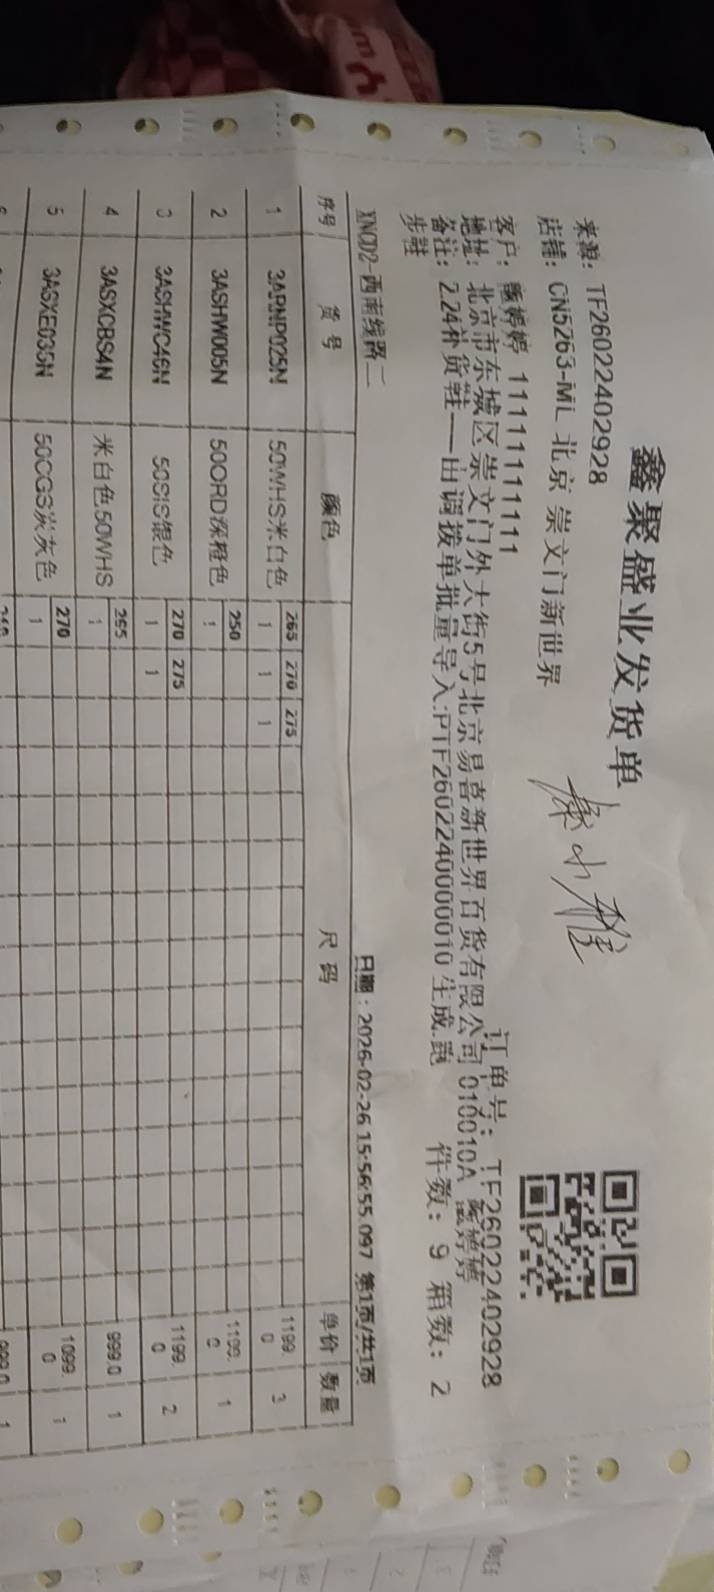 鑫聚盛业发货单
来源: TF260222402928
店铺: CN5263-ML 北京崇文门新世界
订单号: TF260222402928
客户: 甄婷婷 11111111111
地址: 北京市东城区崇文门外大街5号北京易喜新世界百货有限公司 010010A 甄婷婷
备注: 2.24补货鞋——由调拨单批量导入:PTF2602240000010生成.跑步鞋
件数: 9 箱数: 2
XNCD2-西南线路二
日期: 2026-02-26 15:56:55.097 第1页/共1页
序号 货号 颜色 尺码 单价 数量
265 270 275
1 3ARNP025N 50WHS米白色 1 1 1 1199.0 3
250
2 3ASHW005N 50ORD深橙色 1 1199.0 1
270 275
3 50SIS银色 1 1 1199.0 2
265
4 3ASXCBS4N 米白色50WHS 1 999.0 1
270
5 3ASXE035N 50CGS炭灰色 1 1099.0 1